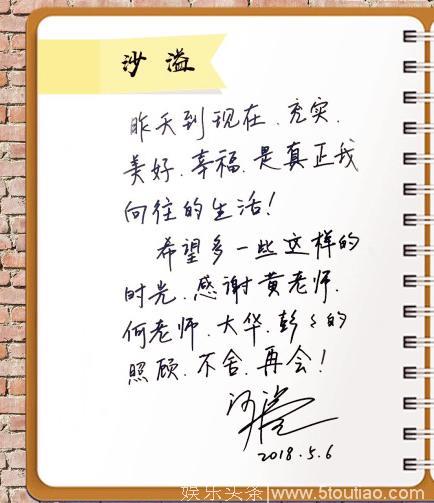 沙溢
昨天到现在、充实、
美好、幸福、是真正我
向往的生活！
希望多一些这样的
时光、感谢黄老师、
何老师、大华、彭彭的
照顾、不舍、再会！
沙溢
2018.5.6
娱乐头条 /www.5toutiao.com